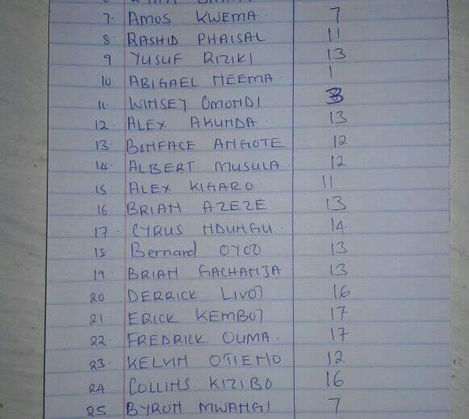 7. AMOS KWEMA 7
8. RASHID PHAISAL 11
9 YUSUF RIZIKI 13
10 ABIGAEL NEEMA 1
11. WINSEY OMONDI 3
12. ALEX AKUNDA 13
13 BONFACE ANGOTE 12
14. ALBERT MUSULA 12
15 ALEX KIGARO 11
16 BRIAN AZEZE 13
17. CYRUS NDUNGU 14
18 Bernard OYOO 13
19. BRIAN GACHANJA 13
20 DERRICK LIVOI 16
21. ERICK KEMBOI 17
22. FREDRICK OUMA 17
23. KELVIN OTIENO 12
24 COLLINS KIZIBO 16
25 BYRON MWANGI 7